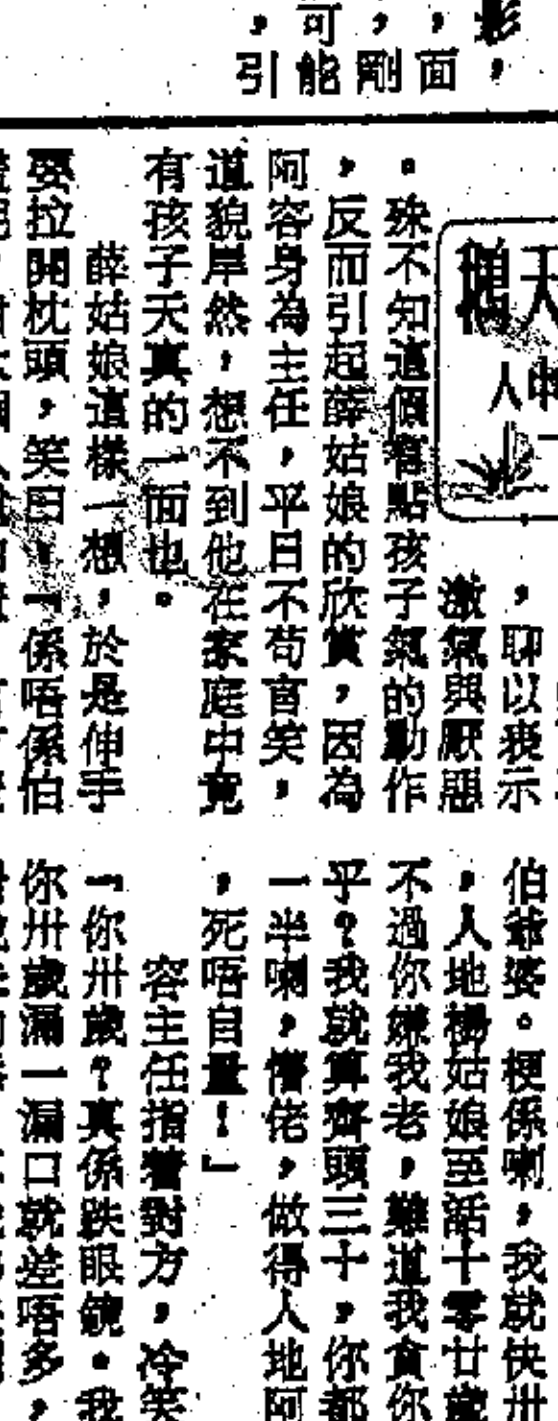 影，
，面
，剛
可能
，引
天
鵝
中人
，聊以表示
激氣與厭惡
。殊不知這個有點孩子氣的動作
，反而引起薛姑娘的欣賞，因為
阿容身為主任，平日不苟言笑，
道貌岸然，想不到他在家庭中竟
有孩子天真的一面也。
薛姑娘這樣一想，於是伸手
要拉開枕頭，笑曰：「係唔係怕
伯爺婆。梗係喇，我就快卅
，人地楊姑娘至話十零廿歲
不過你嫌我老，難道我貪你
乎？我就算齊頭三十，你都
一半喇，懵佬，做得人地阿
，死唔自量！」
容主任指着對方，冷笑
「你卅歲？真係跌眼鏡。我
你卅歲漏一漏口就差唔多，